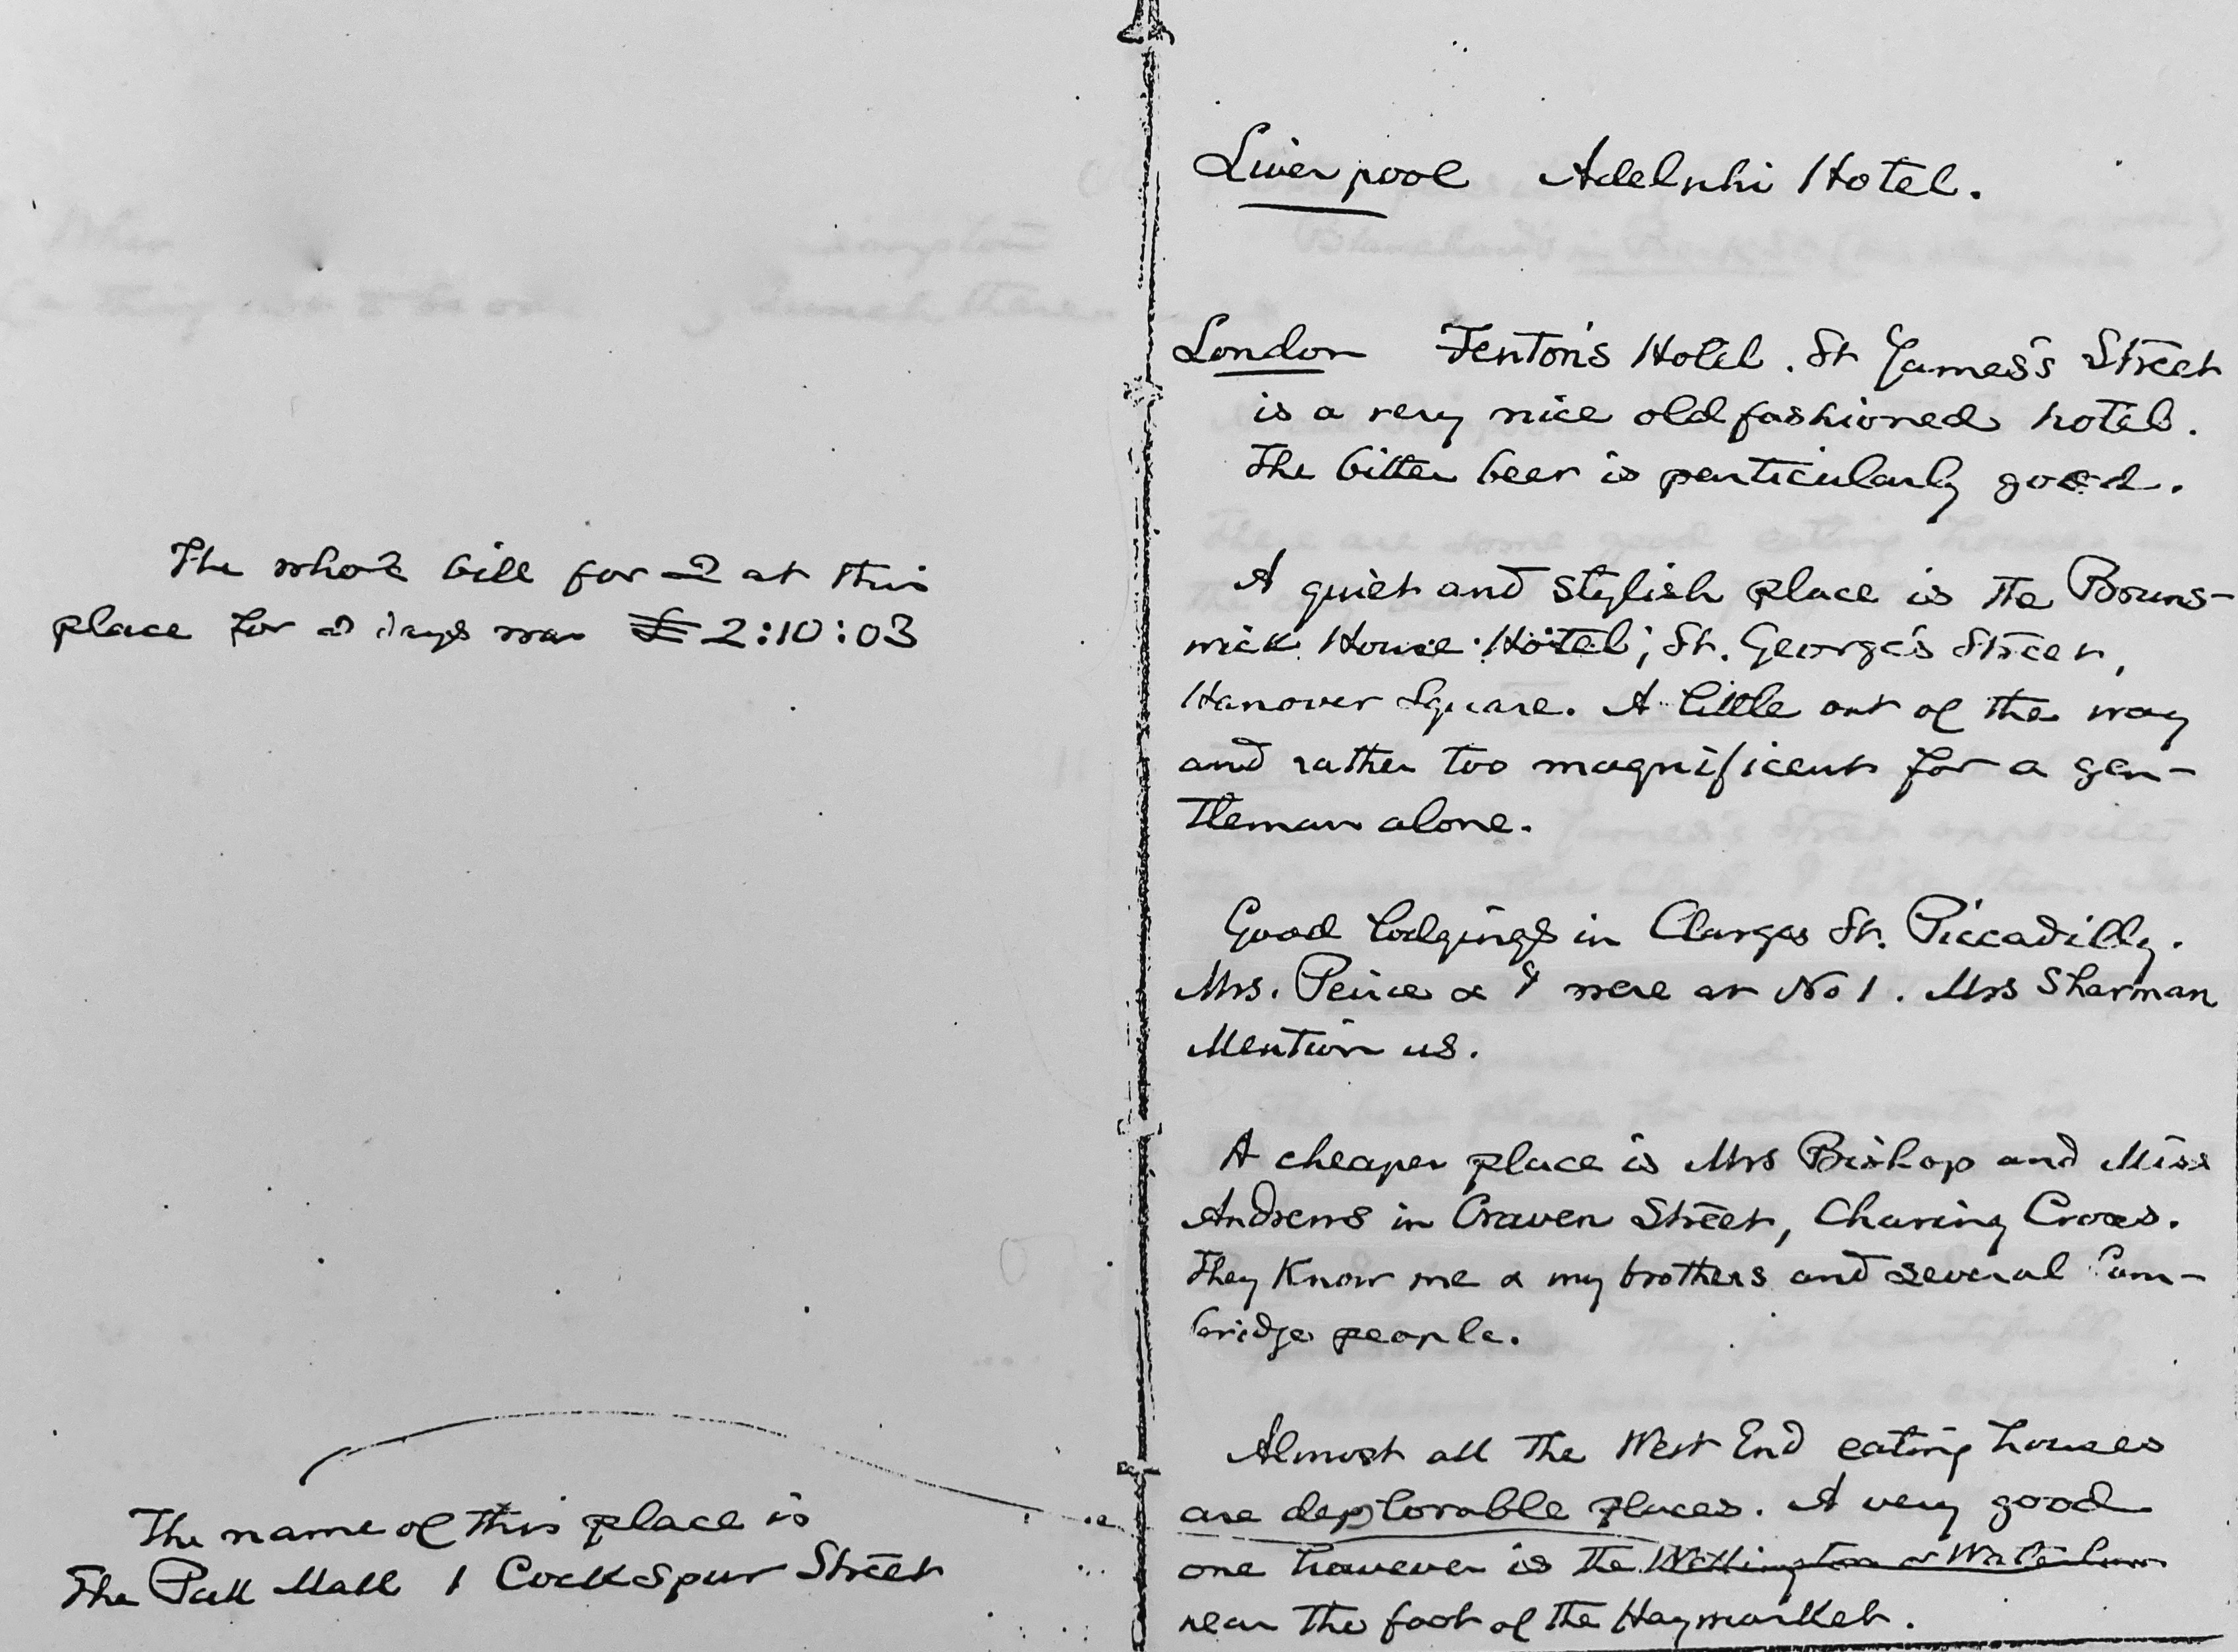 The whole bill for 2 at this
place for 2 days was £2:10:03
The name of this place is
The Pall Mall 1 Cockspur Street
Liverpool Adelphi Hotel.
London Fenton's Hotel. St James's Street
is a very nice old fashioned hotel.
The bitter beer is particularly good.
A quiet and stylish place is the Bruns-
wick House Hotel, St. George's Street,
Hanover Square. A little out of the way
and rather too magnificent for a gen-
tleman alone.
Good lodgings in Clarges St. Piccadilly.
Mrs. Peirce & I were at No 1. Mrs Sharman
Mention us.
A cheaper place is Mrs Bishop and Miss
Andrews in Craven Street, Charing Cross.
They know me & my brothers and several Cam-
bridge people.
Almost all the West End eating houses
are deplorable places. A very good
one however is the Wellington or Waterloo
near the foot of the Haymarket.